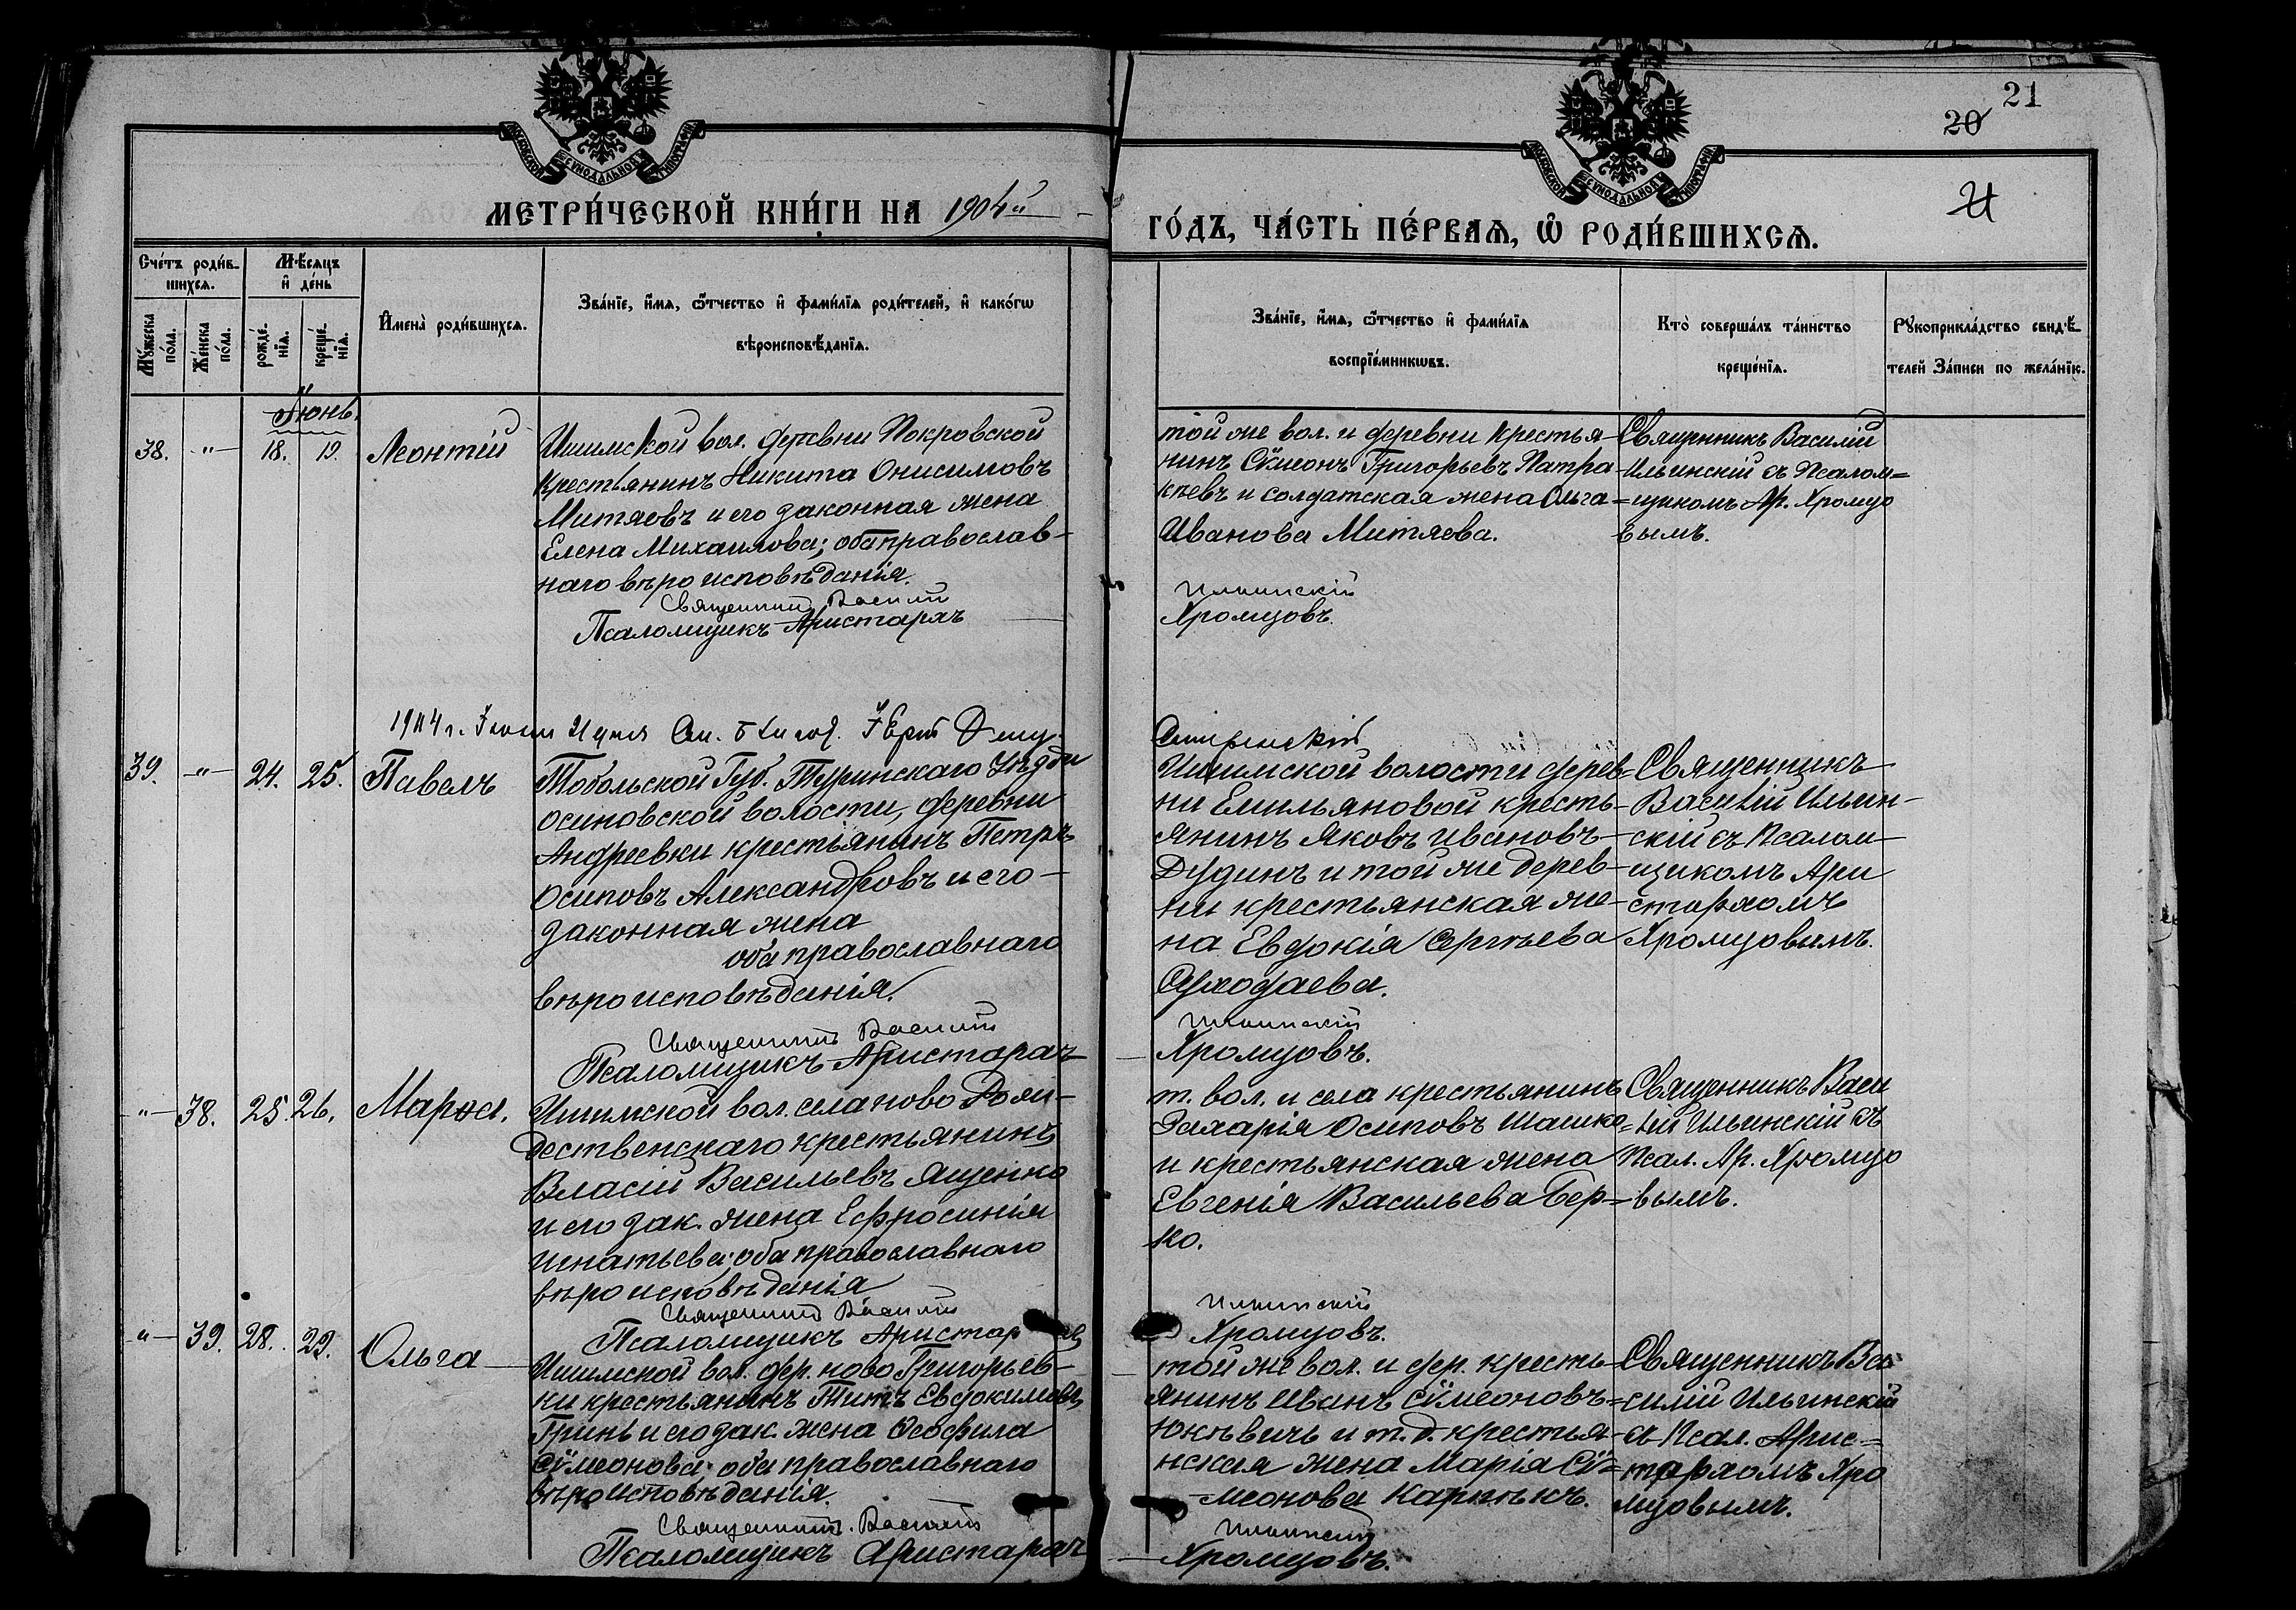 21
20
21
МЕТРИ́ЧЕСКОЙ КНИ́ГИ НА 1904й
ГО́ДЪ, ЧА́СТЬ ПЕ́РВАѦ, Ѡ РОДИ́ВШИХСѦ.
МОСКОВСКОЙ СѴНОДАЛЬНОЙ ТИПОГРАФІИ
МОСКОВСКОЙ СѴНОДАЛЬНОЙ ТИПОГРАФІИ
Сче́тъ роди́в-
шихсѧ.
Мѣ́сѧцъ
и҆ де́нь
Мꙋ́жеска
по́ла.
Же́нска
по́ла.
рожде́-
нїѧ.
креще́-
нїѧ.
И҆мена̀ роди́вшихсѧ.
Зва́нїе, и҆́мѧ, ѻ҆́тчество и҆ фами́лїѧ роди́телей, и҆ како́гѡ
вѣроисповѣ́данїѧ.
Зва́нїе, и҆́мѧ, ѻ҆́тчество и҆ фами́лїѧ
воспрїе́мникѡвъ.
Кто̀ соверша́лъ та́инство
креще́нїѧ.
Рꙋкоприкла́дство свидѣ́-
телей За́писи по жела́нїю.
Іюнь.
38. -"- 18. 19. Леонтій
Ишимской вол. деревни Покровской
крестьянинъ Никита Онисимовъ
Митяевъ и его законная жена
Елена Михаилова; оба православ-
наго вѣроисповѣданія.
Священникъ Василій
Псаломщикъ Аристархъ
той же вол. и деревни крестья-
нинъ Сѵмеонъ Григорьевъ Патра-
кѣевъ и солдатская жена Ольга
Иванова Митяева.
Ильинскій
Хромцовъ.
Священникъ Василій
Ильинскій съ Псалом=
щикомъ Ар. Хромцо
вымъ.
39. -"- 24. 25. Павелъ
Тобольской Губ. Туринскаго Уѣзда
Осиновской волости, деревни
Андреевки крестьянинъ Петръ
Осиповъ Александровъ и его
законная жена
оба православнаго
вѣроисповѣданія.
Священникъ Василій
Псаломщикъ Аристархъ
Ишимской волости дерев=
ни Емильяновой кресть-
янинъ Яковъ Ивановъ
Дудинъ и той же дерев-
ни крестьянская же-
на Евдокія Сергѣева
Суходаева.
Ильинскій
Хромцовъ.
Священникъ
Василій Ильин-
скій съ Псалом-
щикомъ Ари
стархомъ
Хромцовымъ.
-"- 38. 25. 26. Марѳа.
Ишимской вол. села ново Рож-
дественскаго крестьянинъ
Власій Васильевъ Ященко
и его зак. жена Ефросинія
Игнатьева; оба православнаго
вѣроисповѣданія
Священникъ Василій
Псаломщикъ Аристархъ
т. вол. и села крестьянинъ
Захарія Осиповъ Шашко
и крестьянская жена
Евгенія Васильева Бер=
ко.
Ильинскій
Хромцовъ.
Священникъ Васи
лій Ильинскій съ
Псал. Ар. Хромцо
вымъ.
-"- 39. 28. 29. Ольга
Ишимской вол. дер. ново Григорьев-
ки крестьянинъ Титъ Евдокимовъ
Гринь и его зак. жена Ѳеофила
Сѵмеонова; оба православнаго
вѣроисповѣданія.
Священникъ Василій
Псаломщикъ Аристархъ
той же вол. и дер. кресть-
янинъ Иванъ Сѵмеоновъ
Юкѣвичъ и т. д. крестья-
нская жена Марія Сѵ=
меонова
Ильинскій
Хромцовъ.
Священникъ Ва-
силій Ильинскій
съ Псал. Арис=
тархомъ Хро
мцовымъ.